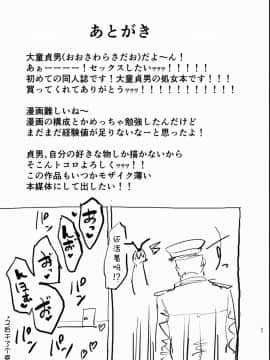 あとがき
大童貞男(おおさわらさだお)だよ～ん!
あぁーーーー!セックスしたいｯｯｯ!!!!!!!!!
初めての同人誌です!大童貞男の処女本です!!!!
買ってくれてありがとうｯｯｯ!!!!!!!!!!!!!!!!
漫画難しいね～
漫画の構成とかめっちゃ勉強したんだけど
まだまだ経験値が足りないなーと思ったよ!
貞男、自分の好きな物しか描かないから
そこんトコロよろしくｯｯ!!!
この作品もいつかモザイク薄い
本媒体にして出したい!!
还活着吗!?
あっ
んお
おっ
パン
パン
パン
パン